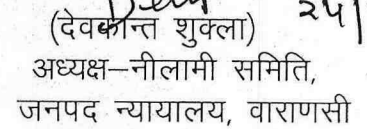 (देवकान्त शुक्ला)
अध्यक्ष–नीलामी समिति,
जनपद न्यायालय, वाराणसी